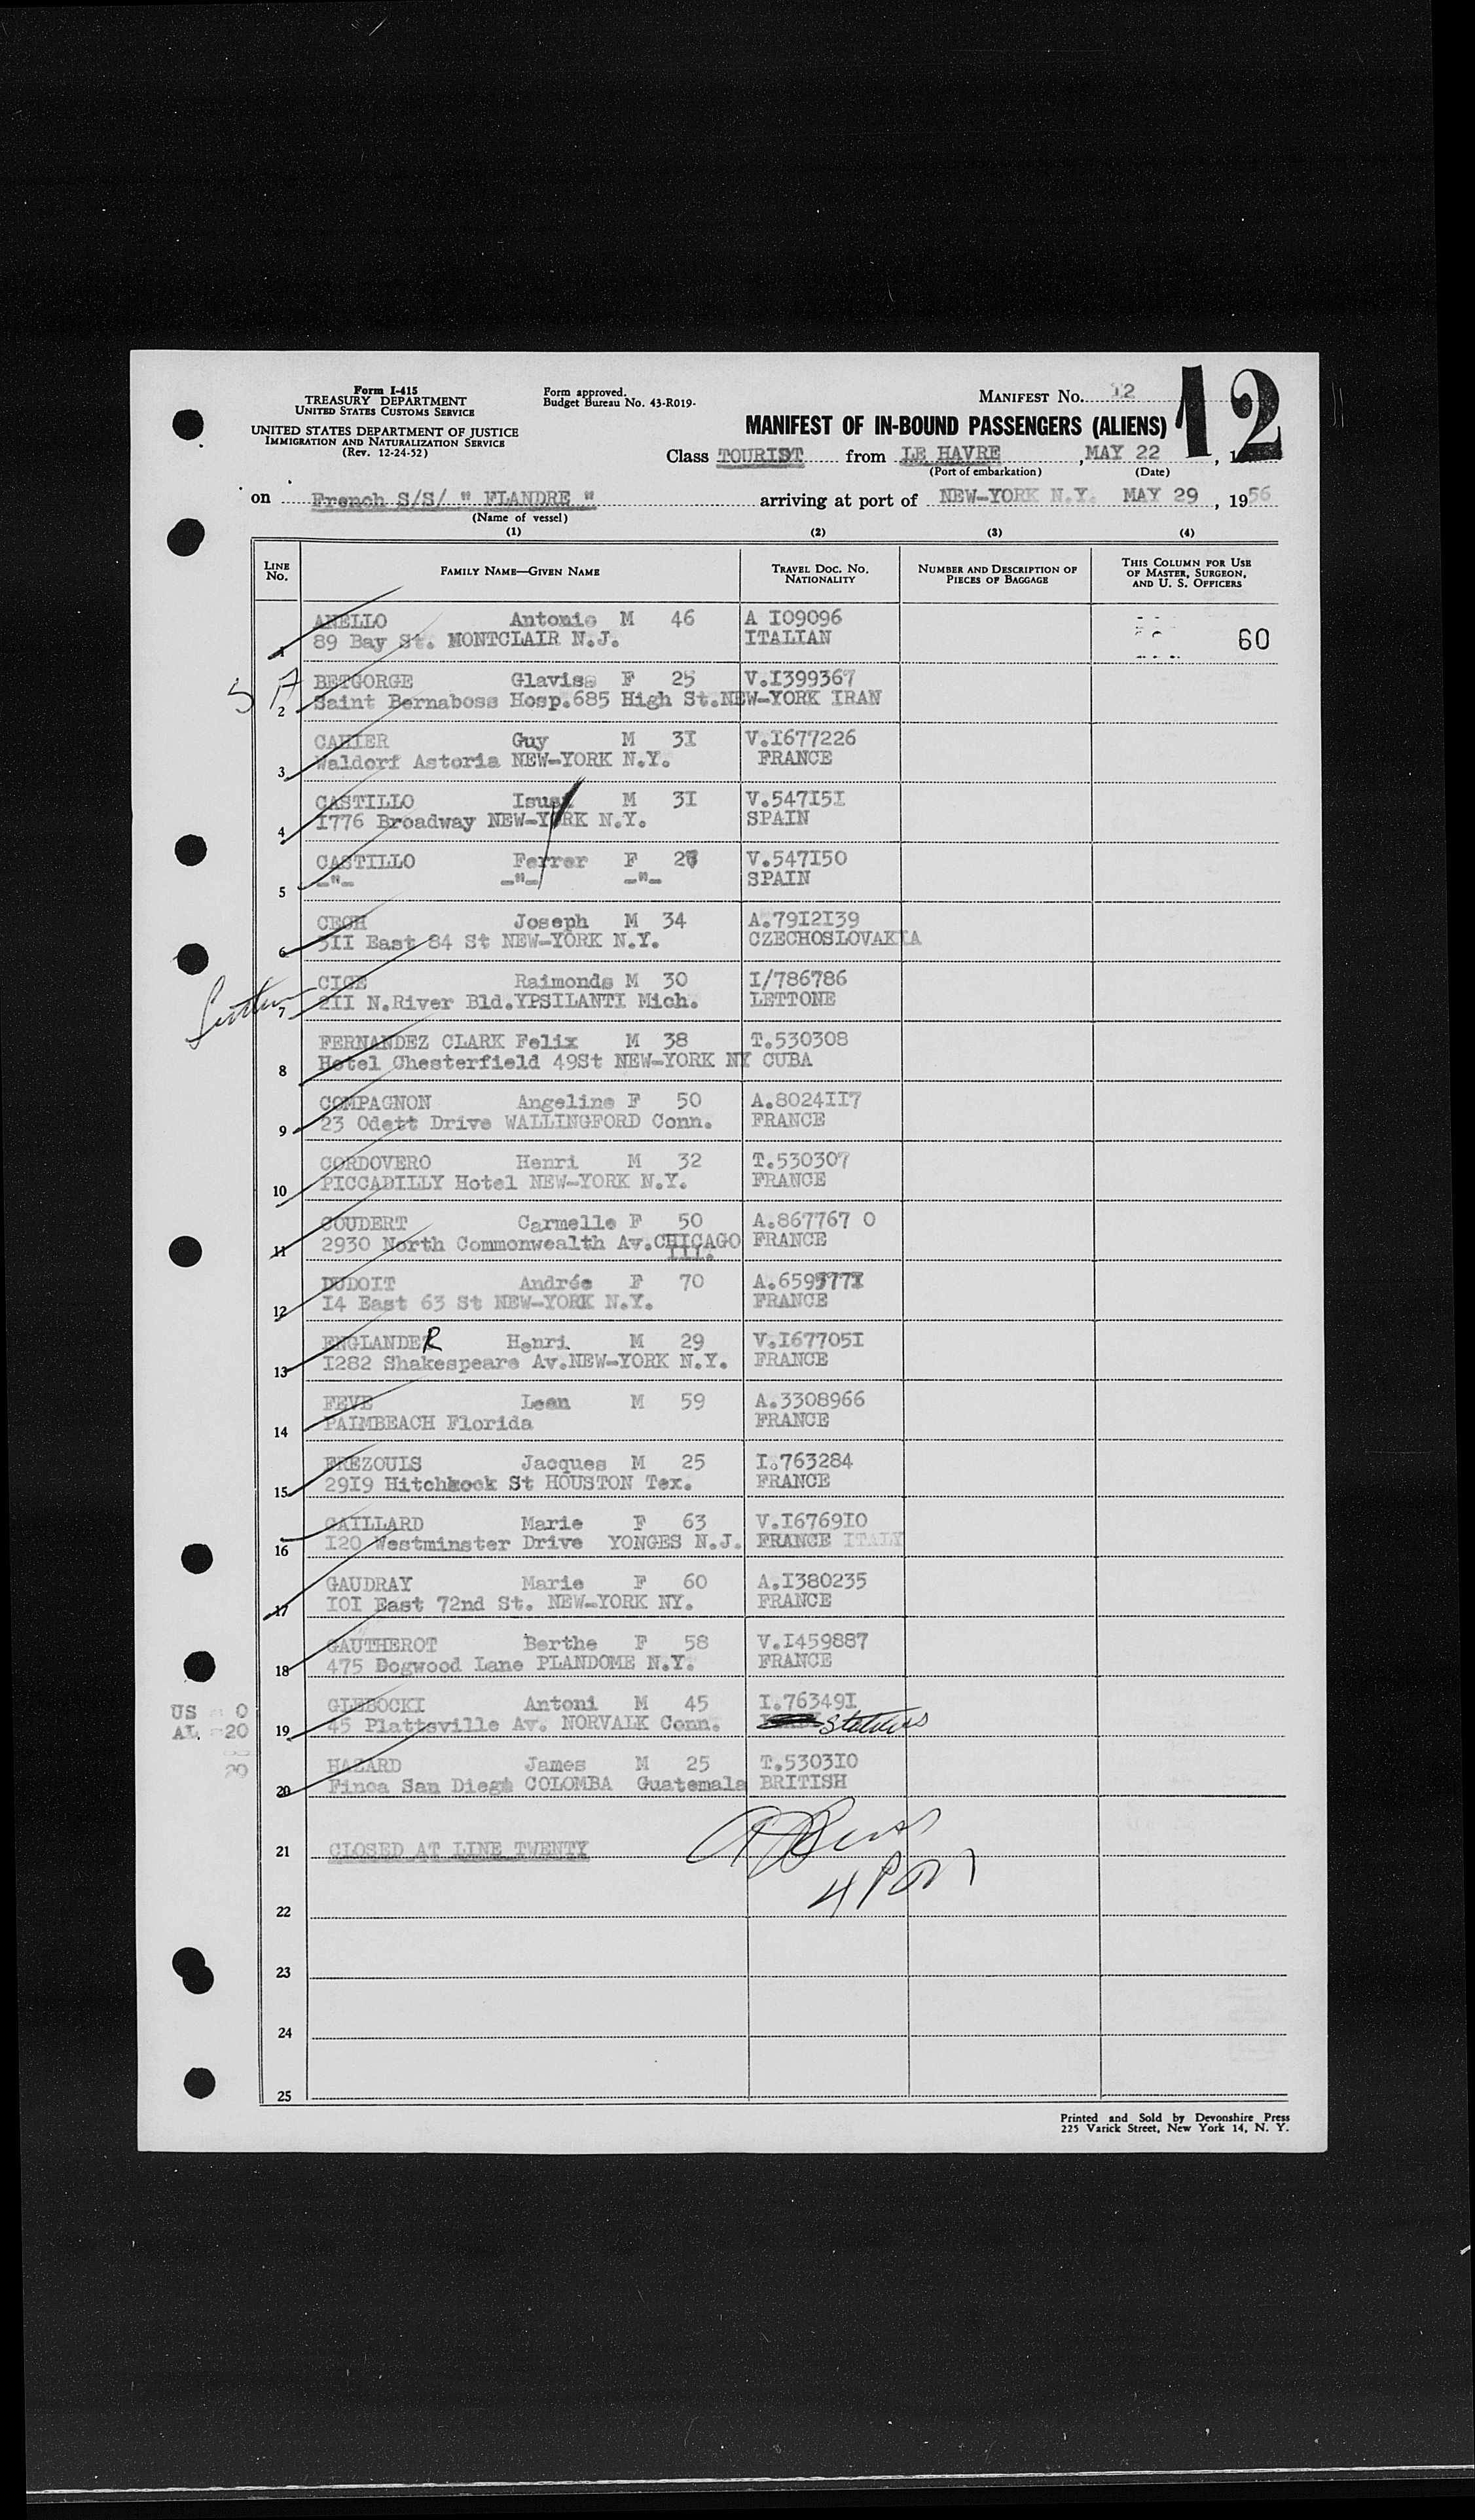 Form I-415
TREASURY DEPARTMENT
UNITED STATES CUSTOMS SERVICE
UNITED STATES DEPARTMENT OF JUSTICE
IMMIGRATION AND NATURALIZATION SERVICE
(Rev. 12-24-52)
Form approved.
Budget Bureau No. 43-R019-
MANIFEST No. 12
12
MANIFEST OF IN-BOUND PASSENGERS (ALIENS)
Class TOURIST from LE HAVRE, MAY 22, 1
(Port of embarkation) (Date)
on French S/S/ " FLANDRE " arriving at port of NEW-YORK N.Y. MAY 29, 1956
(Name of vessel)
(1) (2) (3) (4)
LINE No. FAMILY NAME—GIVEN NAME TRAVEL DOC. NO. NATIONALITY NUMBER AND DESCRIPTION OF PIECES OF BAGGAGE THIS COLUMN FOR USE OF MASTER, SURGEON, AND U. S. OFFICERS
ANELLO Antonio M 46 A I09096
1 89 Bay St. MONTCLAIR N.J. ITALIAN 60
BETGORGE Glaviss F 25 V.I399367
2 Saint Bernaboss Hosp.685 High St.NEW-YORK IRAN
CAHIER Guy M 3I V.I677226
3 Waldorf Astoria NEW-YORK N.Y. FRANCE
CASTILLO M 3I V.547I5I
4 I776 Broadway NEW-YORK N.Y. SPAIN
CASTILLO Ferrer F V.547I50
5 -"- -"- -"- SPAIN
CECH Joseph M 34 A.79I2I39
6 3II East 84 St NEW-YORK N.Y. CZECHOSLOVAKIA
CIGE Raimonds M 30 I/786786
7 2II N.River Bld.YPSILANTI Mich. LETTONE
FERNANDEZ CLARK Felix M 38 T.530308
8 Hotel Chesterfield 49St NEW-YORK NY CUBA
COMPAGNON Angeline F 50 A.8024II7
9 23 Odett Drive WALLINGFORD Conn. FRANCE
CORDOVERO Henri M 32 T.530307
10 PICCADILLY Hotel NEW-YORK N.Y. FRANCE
COUDERT Carmelle F 50 A.867767 0
11 2930 North Commonwealth Av.CHICAGO ILL. FRANCE
DUDOIT Andrée F 70
12 I4 East 63 St NEW-YORK N.Y. FRANCE
ENGLANDER Henri M 29 V.I67705I
13 I282 Shakespeare Av.NEW-YORK N.Y. FRANCE
FEVE Lean M 59 A.3308966
14 PAIMBEACH Florida FRANCE
FREZOULS Jacques M 25 I.763284
15 29I9 Hitchkock St HOUSTON Tex. FRANCE
GAILLARD Marie F 63 V.I6769I0
16 I20 Westminster Drive YONGES N.J. FRANCE ITALY
GAUDRAY Marie F 60 A.I380235
17 I0I East 72nd St. NEW-YORK NY. FRANCE
GAUTHEROT Berthe F 58 V.I459887
18 475 Dogwood Lane PLANDOME N.Y. FRANCE
GLEBOCKI Antoni M 45 I.76349I
19 45 Plattsville Av. NORVALK Conn. Stateless
HAZARD James M 25 T.5303I0
20 Finca San Diego COLOMBA Guatemala BRITISH
US = 0
AL = 20
20
21 CLOSED AT LINE TWENTY
22
23
24
25
Printed and Sold by Devonshire Press
225 Varick Street, New York 14, N. Y.